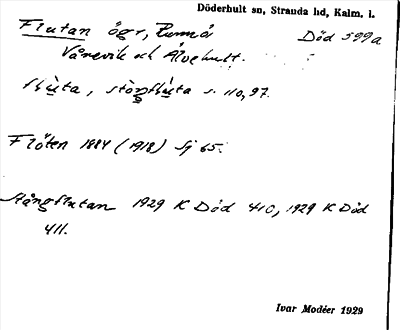 Döderhult sn, Stranda hd, Kalm. l.
Flutan ögr, Runnö Död 599a
Vånevik och Älvehult.
flùta, stòŋflùta s. 110, 97.
Flöten 1884 (1918) Sj 65.
Stångflutan 1929 K Död 410, 1929 K Död
411.
Ivar Modéer 1929